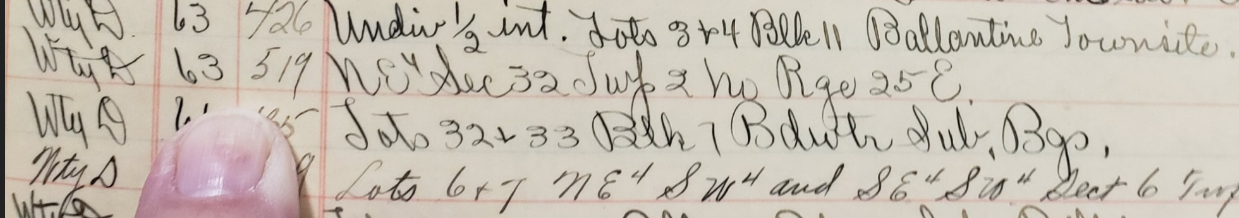 Wty D. 63 426 Undiv 1/2 int. Lots 3+4 Blk 11 Ballantine Townsite.
Wty D 63 519 NE4 Sec 32 Twp 2 No Rge 25 E.
Wty D Lots 32+33 Blk 7 Bdwtr Sub, Bgs,
Wty D 9 Lots 6+7 NE4 SW4 and SE4 SW4 Sect 6 Twp
Wty D